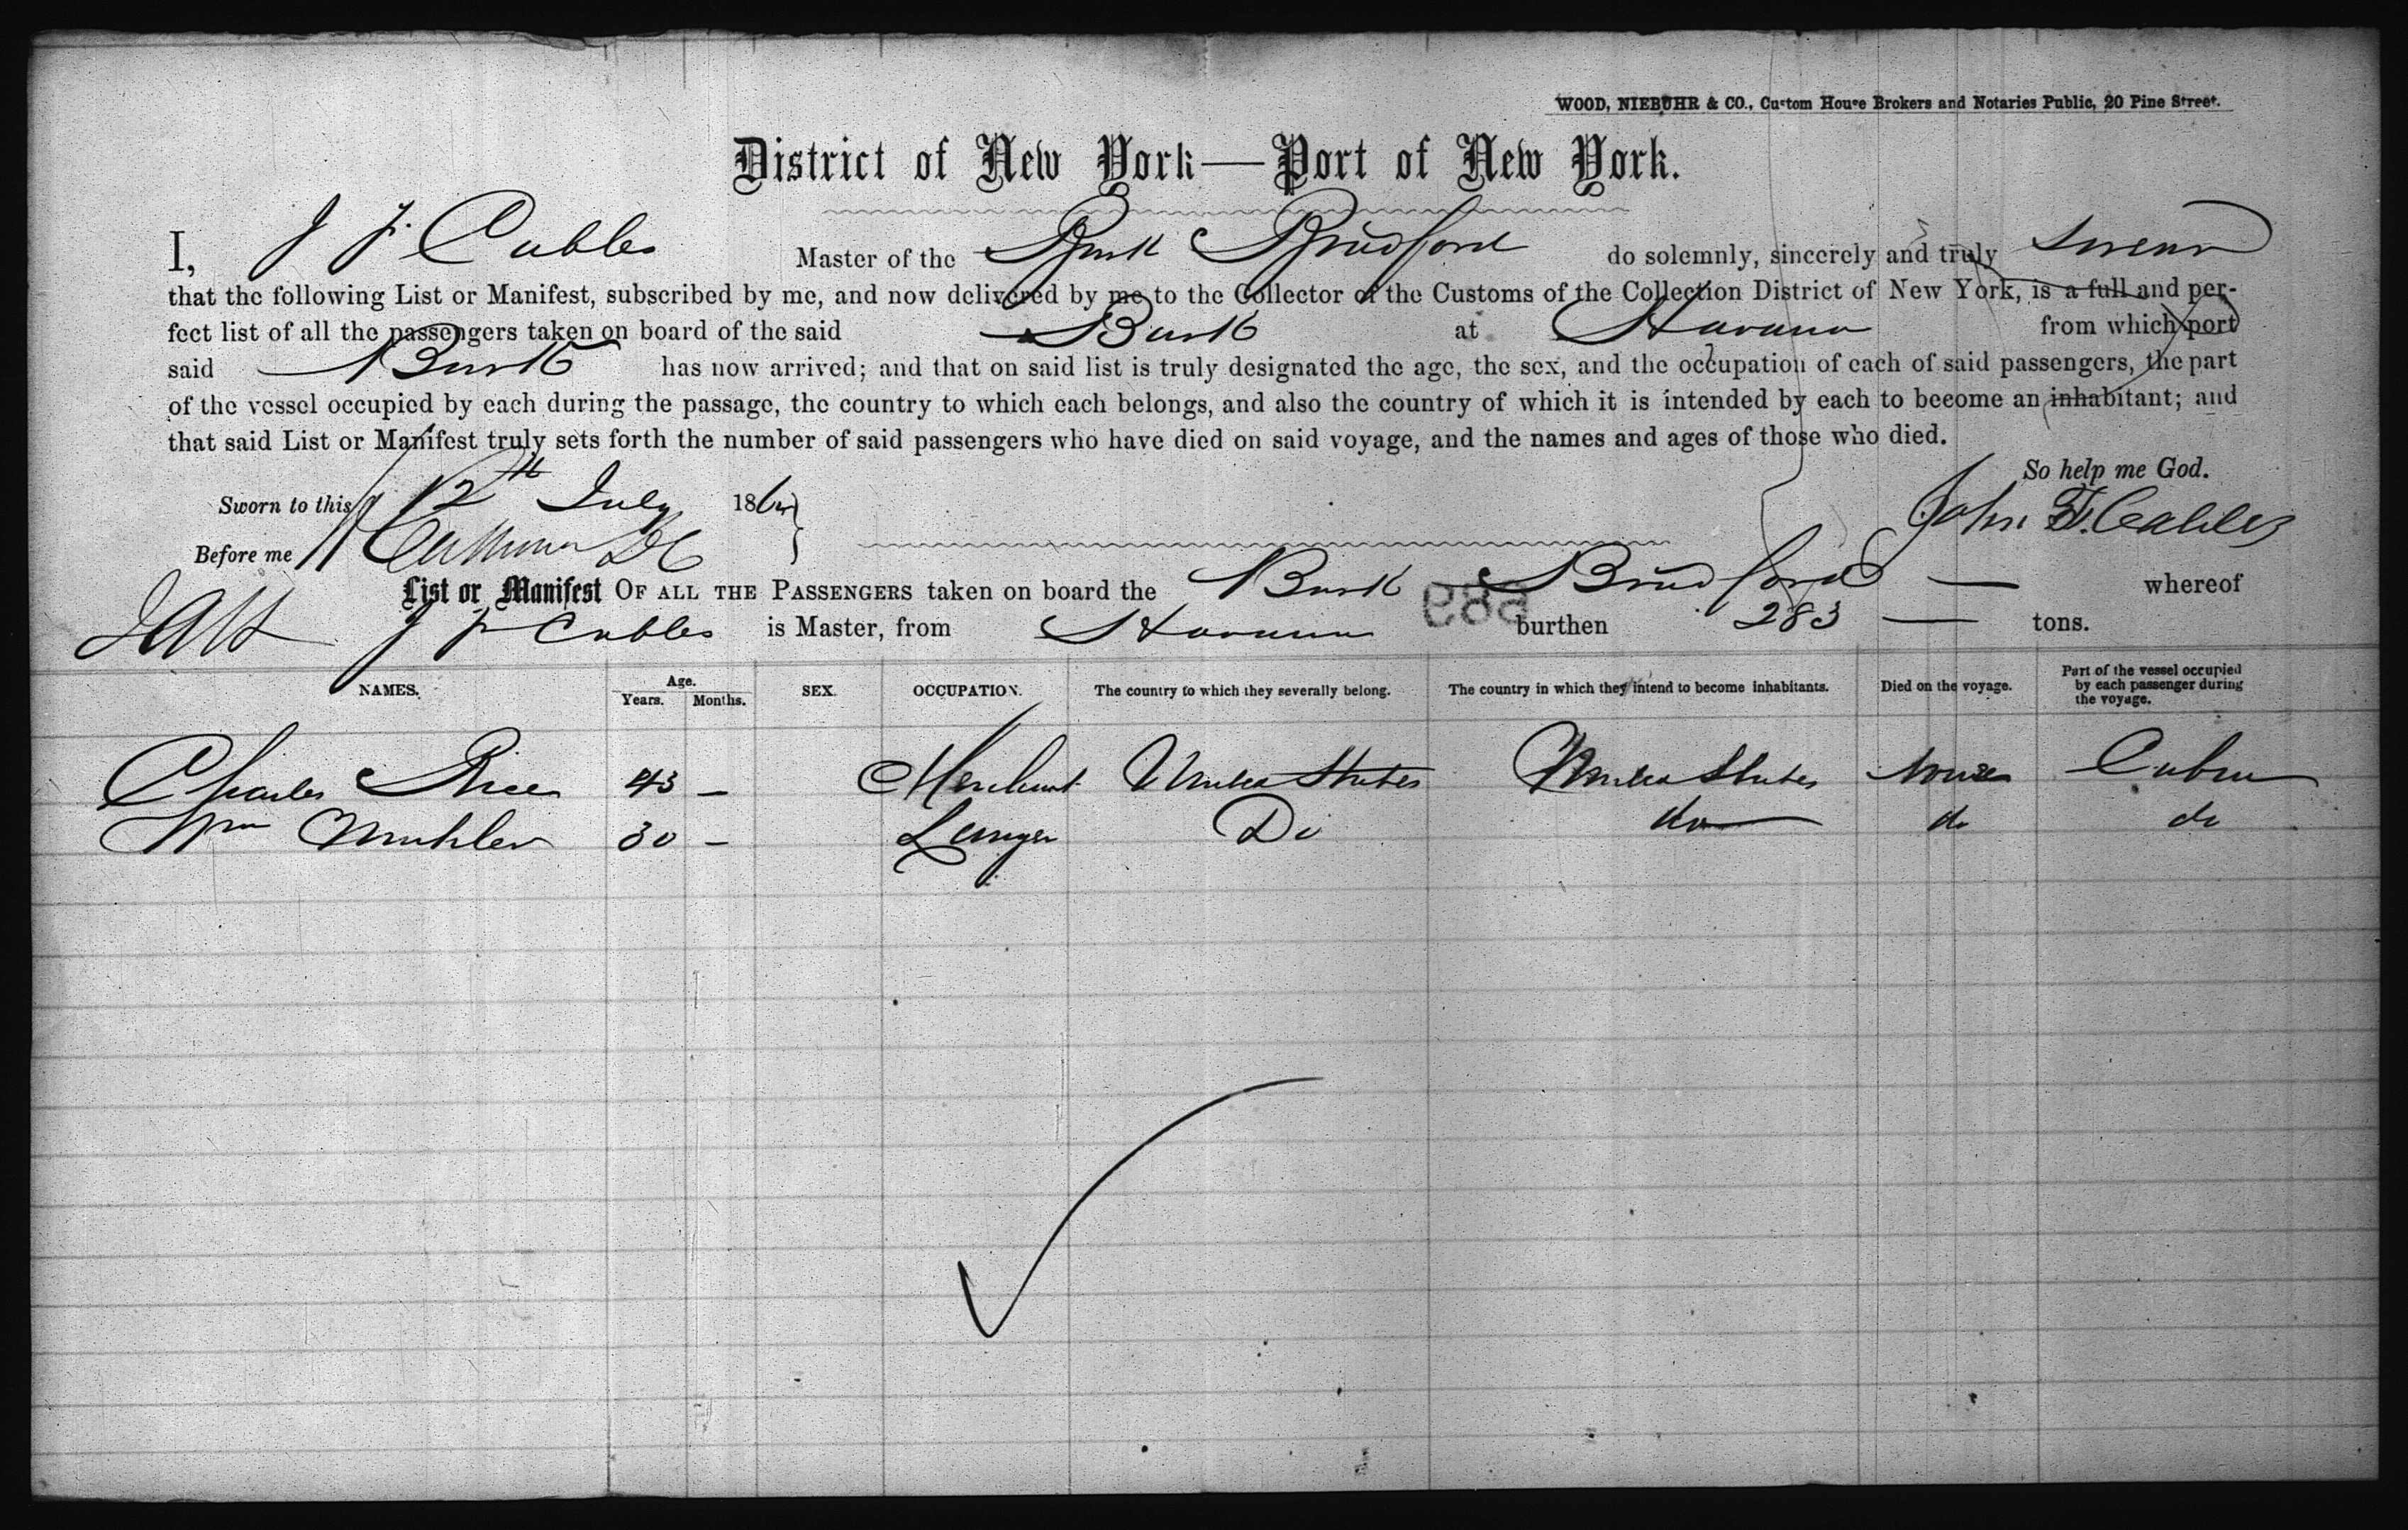 WOOD, NIEBUHR & CO., Custom House Brokers and Notaries Public, 20 Pine Street.
District of New York—Port of New York.
I, J F Cables Master of the Bark Bradford do solemnly, sincerely and truly swear
that the following List or Manifest, subscribed by me, and now delivered by me to the Collector of the Customs of the Collection District of New York, is a full and per-
fect list of all the passengers taken on board of the said Bark at Havana from which port
said Bark has now arrived; and that on said list is truly designated the age, the sex, and the occupation of each of said passengers, the part
of the vessel occupied by each during the passage, the country to which each belongs, and also the country of which it is intended by each to become an inhabitant; and
that said List or Manifest truly sets forth the number of said passengers who have died on said voyage, and the names and ages of those who died.
So help me God.
Sworn to this 12th July 186
John F. Cables
Before me
List or Manifest OF ALL THE PASSENGERS taken on board the Bark Bradford — whereof
J F Cables is Master, from Havana burthen 283 — tons.
689
NAMES. Age. Years. Months. SEX. OCCUPATION. The country to which they severally belong. The country in which they intend to become inhabitants. Died on the voyage. Part of the vessel occupied by each passenger during the voyage.
Charles Rice 43 — Merchant United States United States None Cabin
Wm 30 — Lawyer Do do do do